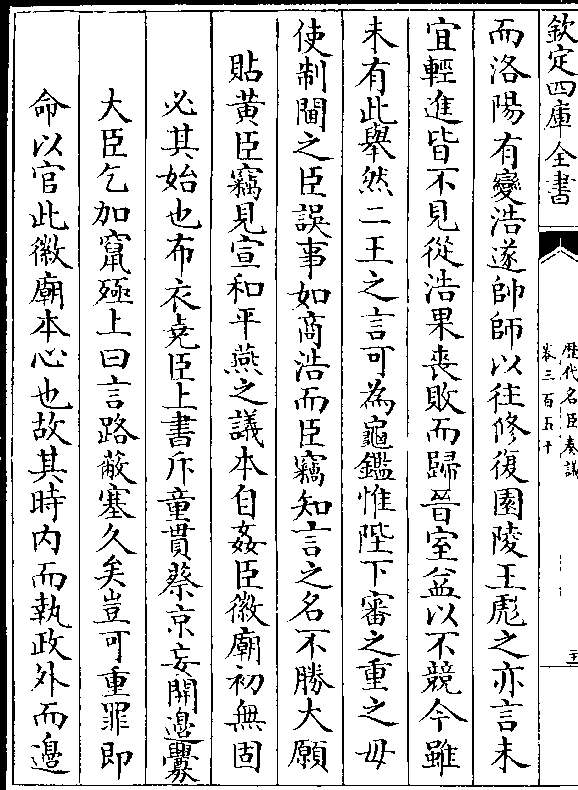 欽定四庫全書
歷代名臣奏議
卷三百五十
而洛陽有變浩遂帥師以往修復園陵王彪之亦言未
宜輕進皆不見從浩果喪敗而歸晉室益以不競今雖
未有此舉然二王之言可為龜鑑惟陛下審之重之毋
使制閫之臣誤事如商浩而臣竊知言之名不勝大願
貼黄臣竊見宣和平燕之議本自姦臣徽廟初無固
必其始也布衣堯臣上書斥童貫蔡京妄開邊釁
大臣乞加竄殛上曰言路蔽塞久矣豈可重罪即
命以官此徽廟本心也故其時内而執政外而邊